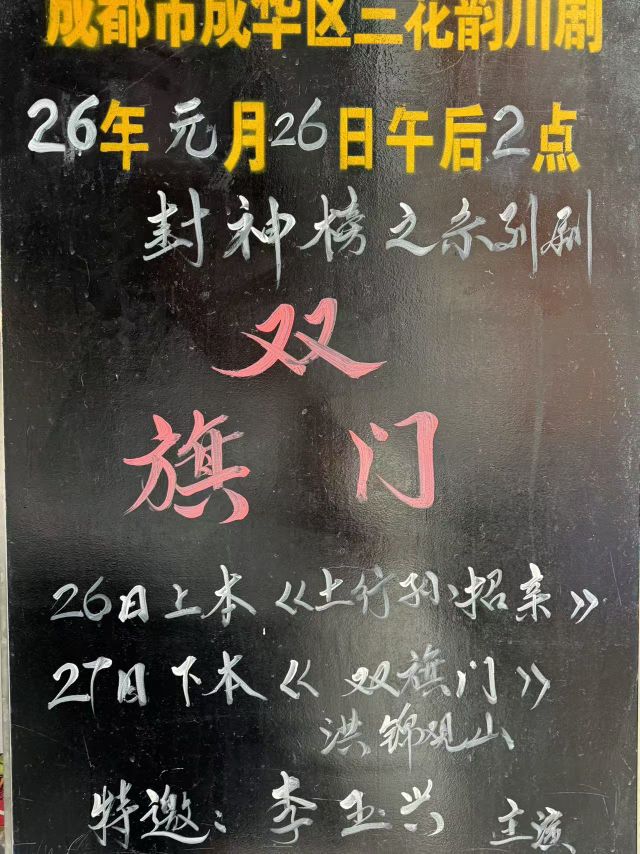 成都市成华区三花韵川剧
26年元月26日午后2点
封神榜之系列剧
双
旗门
26日上本《土行孙招亲》
27日下本《双旗门》
洪锦观山
特邀：李玉兴 主演